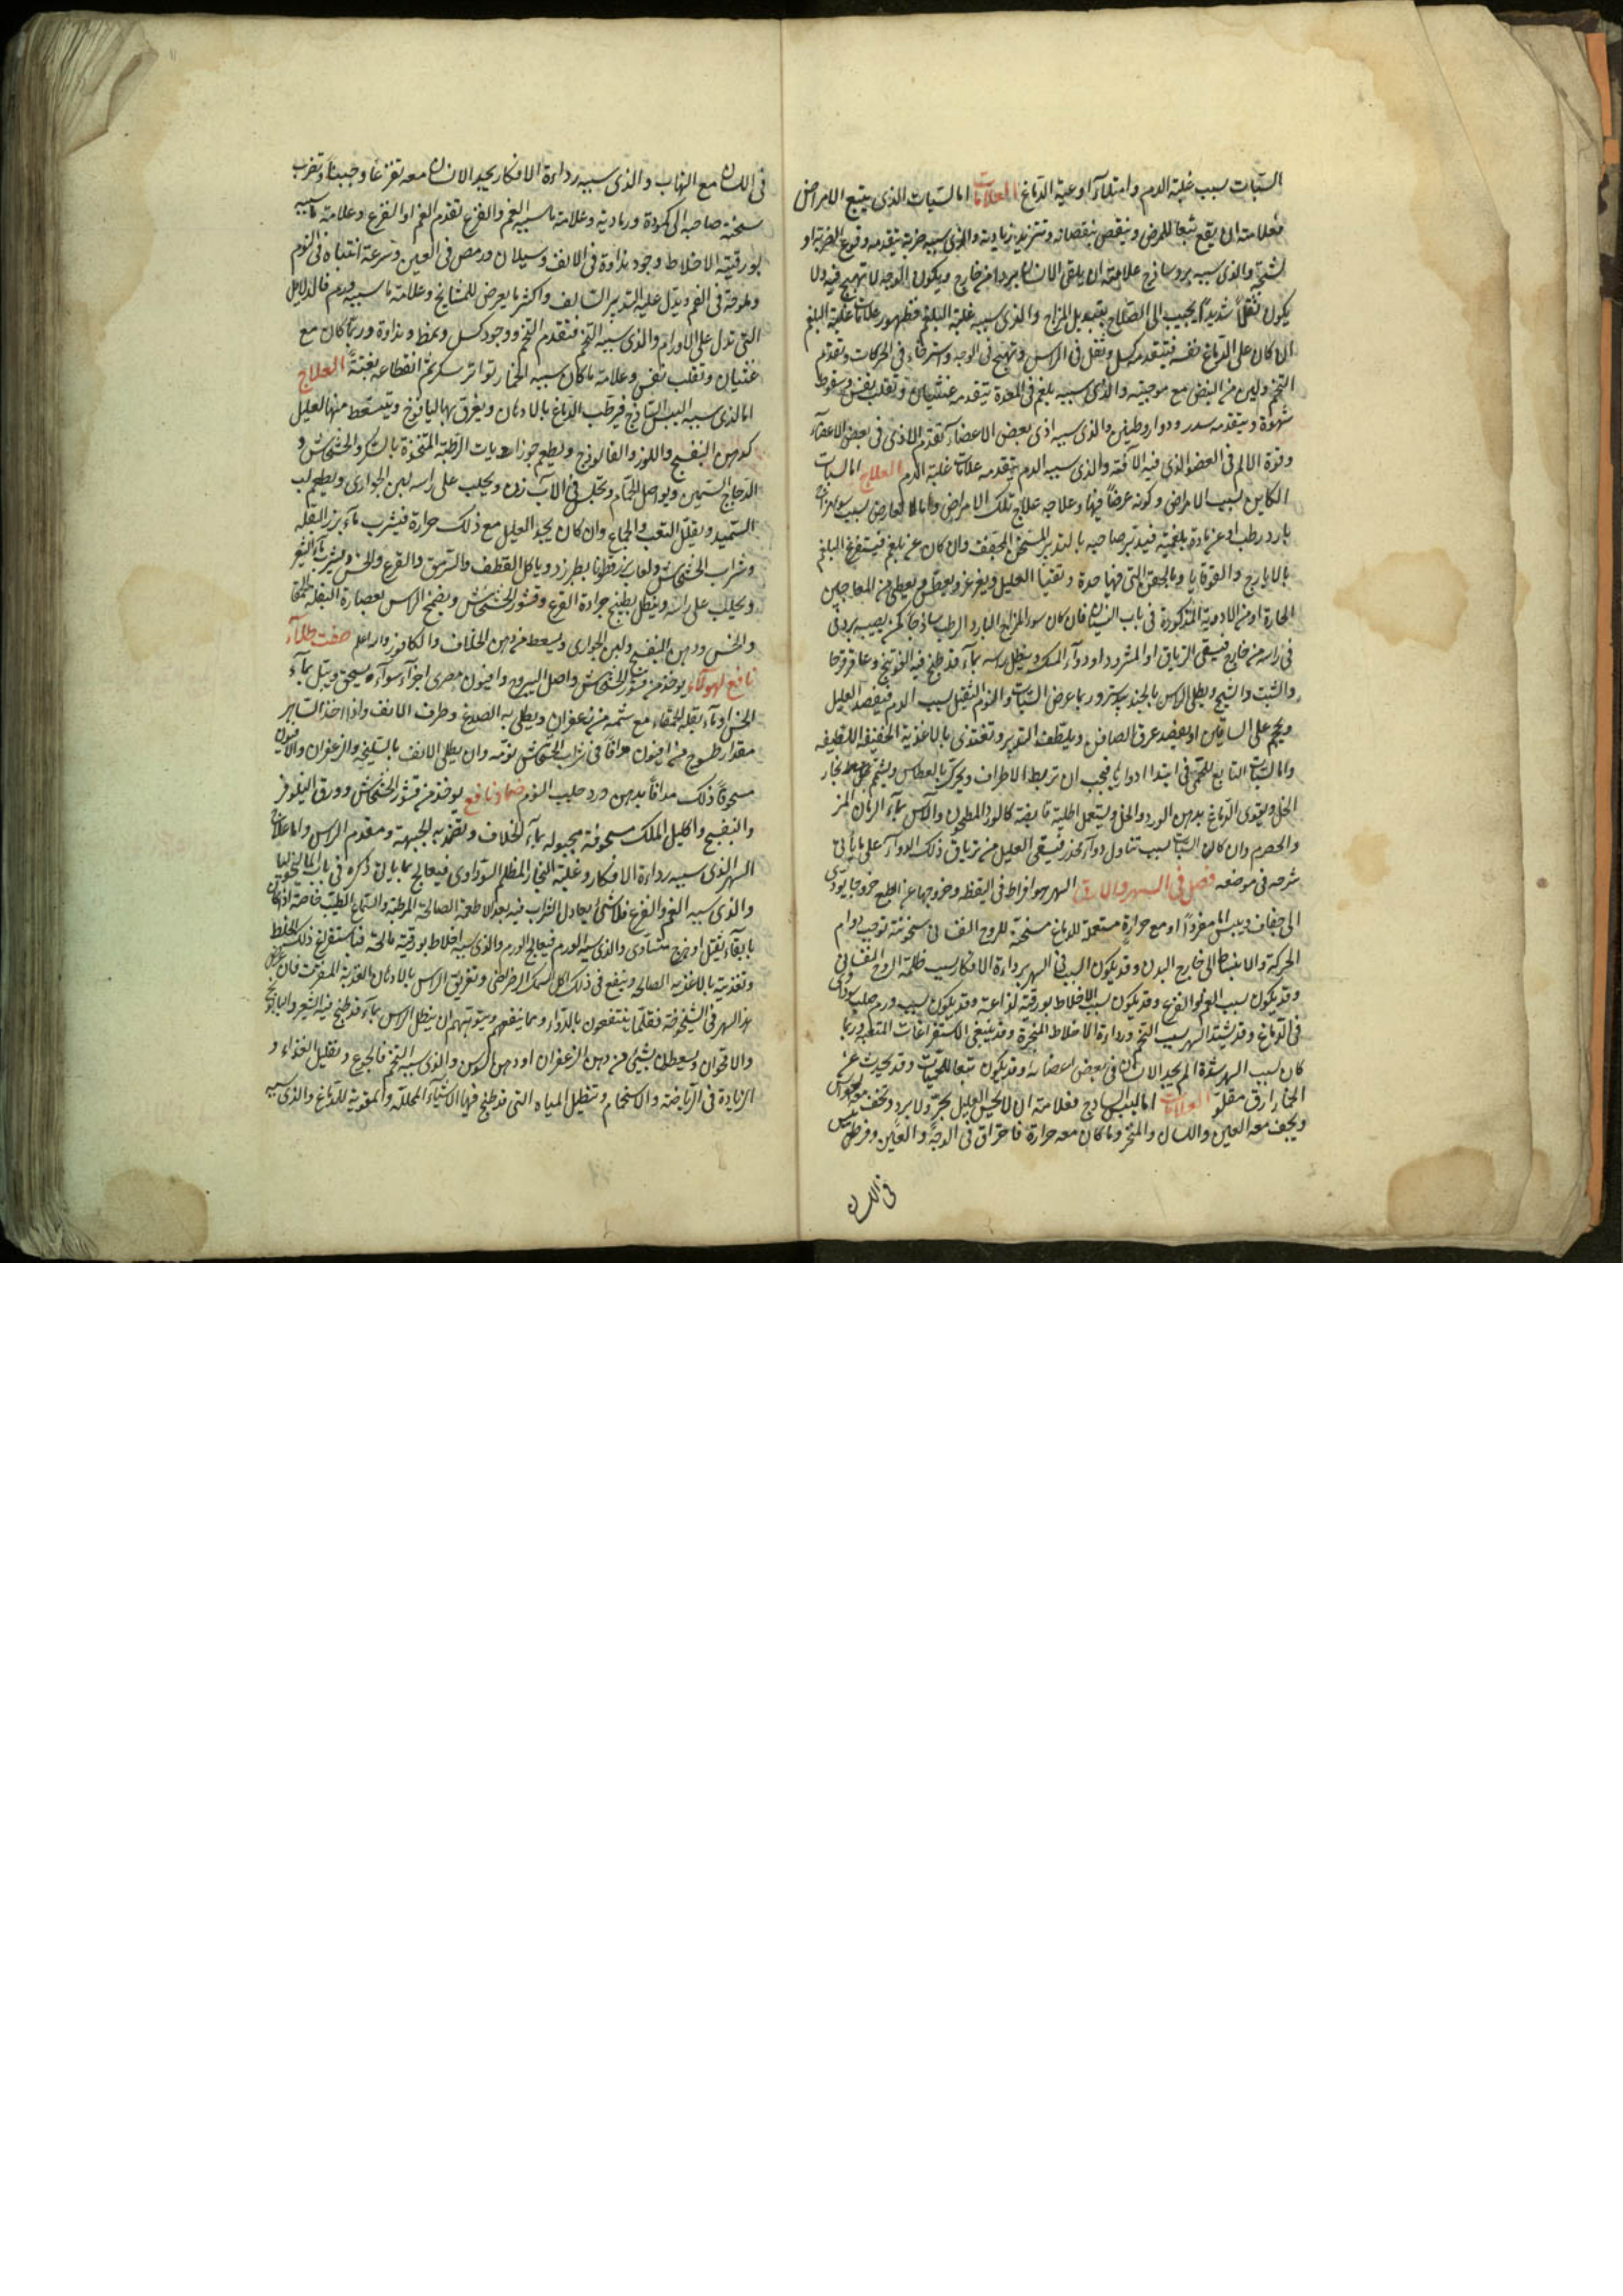 السبات سبب غلبة الدم وامتلاء اوعية الدماغ العلامات اما السبات الذى يتبع الامراض
فعلامته ان يقع تبعا للمرض وينقص بنقصانه وتتزيد بزيادته والذى سببه ضربة يتقدمه وقوع الضربة او
لشجة والذى سببه برد ساذج علامته ان يلقى الانسان بردا من خارج ويكون الوجه لا تهيج فيه ولا
يكون ثقلا شديدا ويجيب الى الصلاح بتعديل المزاج والذى سببه غلبة البلغم فظهور علامات غلبة البلغم
ان كان على الدماغ نفسه فيتقدمه كسل وثقل فى الراس وتهيج فى الوجه واسترخاء فى الحركات وتقدم
التخم ولين من النبض مع موجيته والذى سببه بلغم فى المعدة يتقدمه غثيان وتقلب نفس وسقوط
شهوة ويتقدمه سدر ودوار وطنين والذى سببه اذى بعض الاعضاء تقدم الاذى فى بعض الاعضاء
وقوة الالم فى العضو الذى فيه الآفة والذى سببه الدم يتقدمه علامات غلبة الدم العلاج اما السبات
الكاين بسبب الامراض وكونه عرضا فيها وعلاجه علاج تلك الامراض واما العارض بسبب سوء مزاج
بارد رطب او عن مادة بلغمية فيدبر صاحبه بالتدبير المسخن المجفف وان كان عن بلغم فيستفرغ البلغم
بالايارج والقوقايا وبالحقن التى فيها حدة وتقيا العليل ويغرغر ويعطس ويعطى من المعاجين
الحارة او من الادوية المذكورة فى باب النسيان فان كان سوء المزاج البارد الرطب ساذجا كمن يصيبه برد فى
فى راسه من خارج فيسقى الترياق او المثرود او دواء المسك وينطل راسه بماء قد طبخ فيه الفوتنج وعاقرقرحا
والشبت والشيح ويطلى الراس بالجندبيدستر وربما عرض السبات والنوم الثقيل بسبب الدم فيفصد العليل
ويحجم على الساقين او يفصد عرق الصافن ويلطف التدبير وتغتذى بالاغذية الخفيفة اللطيفة
واما السبات التابع للحمى فى ابتداء ادوارها فيجب ان تربط الاطراف ويحرك بالعطاس ويشتم بخار
الخل ويقوى الدماغ بدهن الورد والخل ويستعمل اطلية قابضة كالورد المطحون والآس بماء الرمان المز
والحصرم وان كان السبات بسبب تناول دواء مخدر فيسقى العليل من ترياق ذلك الدواء على ما ياتى
شرحه فى موضعه فصل فى السهر والارق السهر هو افراط فى اليقظة وخروجها عن الطبع خروجا يودى
الى جفاف ويبس اما مفردا او مع حرارة مستعملة للدماغ مسخنة للروح النفسانى سخونة توجب دوام
الحركة والانبساط الى خارج البدن وقد يكون السبب فى السهر رداءة الافكار بسبب ظلمة الروح النفسانى
وقد يكون بسبب الغم والفزع وقد يكون بسبب الاخلاط بورقية لذاعة وقد يكون بسبب ورم صلب سوداوى
فى الدماغ وقد يشتد السهر بسبب التخم ورداءة الاخلاط المتبخرة وقد ينبغى الاستفراغات المتعبة وربما
كان سبب السهر شدة الم يجده الانسان فى بعض اعضائه وقد يكون تبعا للحميات وقد يحدث عن
الخمار ارق مقلق العلامات اما اليبس الساذج فعلامته ان لا يحس العليل بحر ولا برد وتخف معه الحواس
ويجف معه العين واللسان والمنخر وما كان معه حرارة فاحتراق فى الوجه والعين وفرط يبس
فى اللسان
فى اللسان مع التهاب والذى سببه رداءة الافكار يجد الانسان معه تفزعا وجبنا وتضرب
سحنة صاحبه الى كمودة ورمادية وعلامة ما سببه الغم والفزع تقدم الغم او الفزع وعلامة ما سببه
بورقية الاخلاط وجود نداوة فى الانف وسيلان ورمص فى العين وسرعة انتباه فى النوم
وملوحة فى الفم ويدل عليه التدبير السالف واكثر ما يعرض للمشايخ وعلامة ما سببه ورم فالدلايل
التى تدل على الاورام والذى سببه التخم فتقدم التخم ووجود كسل وتمط ونداوة وربما كان مع
غثيان وتقلب نفس وعلامة ما كان سببه الخمار تواتر سكر ثم انقطاعه بغتة العلاج
اما الذى سببه اليبس الساذج فيرطب الدماغ بالادهان ويغرق بها اليافوخ ويتسعط منها العليل
كدهن البنفسج واللوز والفالوذج ويطعم جوزاهويات الرطبة المتخذة بالسكر والخشخاش و
الدجاج السمين ويواصل الحمام ويجلس فى الآبزن ويحلب على راسه لبن الجوارى ويطعم لب
السميد ويقلل التعب والجماع وان كان يجد العليل مع ذلك حرارة فيشرب ماء بزر البقلة
وشراب الخشخاش ولعاب بزرقطونا بطبرزد وياكل القطف والسرمق والقرع والخس ويشرب ماء الشعير
ويحلب على راسه وينطل بطبيخ جرادة القرع وقشور الخشخاش ويضمد الراس بعصارة البقلة الحمقا
والخس ودهن البنفسج ولبن الجوارى ويسعط من دهن الخلاف والكافور والله اعلم صفت طلاء
نافع لهولاء يوخذ من قشور الخشخاش واصل اليبروح وافيون مصرى اجزاء سواء يسحق ويبل بماء
الخس او ماء بقلة الحمقاء مع شمة من زعفران ويطلى به الصدغ وطرف الانف واذا اخذ الساهر
مقدار طسوج من افيون مدافا فى شراب الخشخاش نومه وان يطلى الانف بالسليخة والزعفران والافيون
مسحوقا ذلك مدافا بدهن ورد جلب النوم ضماد نافع يوخذ من قشور الخشخاش وورق النيلوفر
والبنفسج واكليل الملك مسحوقة مجبولة بماء الخلاف ويضمد به الجبهة ومقدم الراس واما علاج
السهر الذى سببه رداءة الافكار وغلبة البخار المظلم السوداوى فيعالج بما ياتى ذكره فى باب الماليخوليا
والذى سببه الغم والفزع فلا شئ يعادل الشراب فيه بعد الاطعمة الصالحة المرطبة والسماع الطيب خاصة اذا كان
بايقاع ثقيل او هزج متساوى والذى سببه الورم فيعالج الورم والذى سببه اخلاط بورقية مالحة فباستفراغ ذلك الخلط
وتغذيته بالاغذية الصالحة وينفع فى ذلك اكل السمك الرضراضى وتغريق الراس بالادهان العذبة المفترة فان عرض
هذا السهر فى الشيخوخة فقلما ينتفعون بالدواء ومما ينفعهم وينومهم ان ينطل الراس بماء قد طبخ فيه الشعير والبابونج
والاقحوان ويسعطان بشئ من دهن الزعفران او دهن السوسن والذى سببه التخم فالجوع وتقليل الغذاء و
الزيادة فى الرياضة والاستحمام وتنطيل المياه التى قد طبخ فيها الاشياء المحللة والمقوية للدماغ والذى سببه